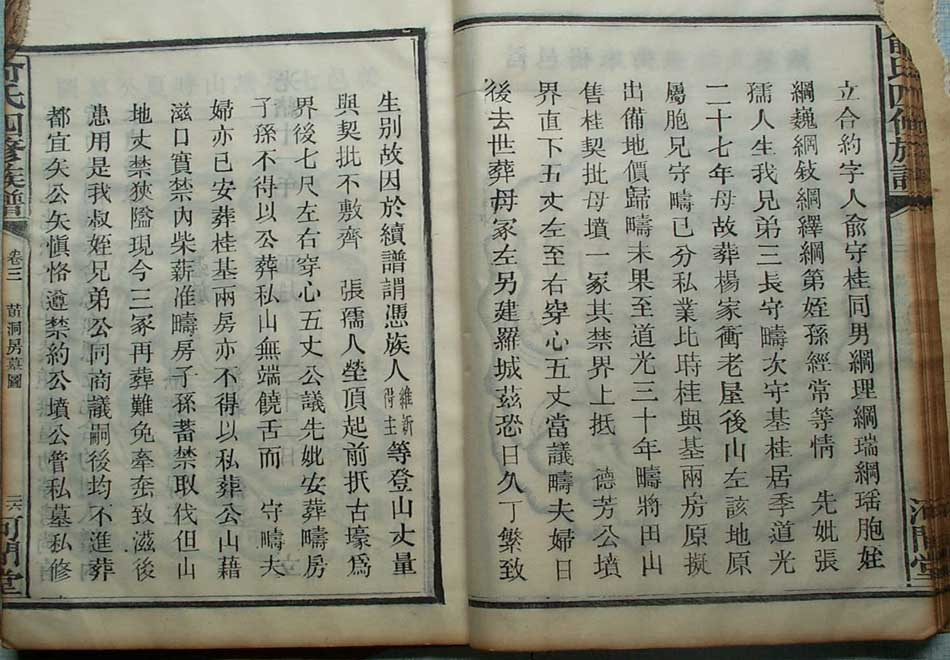 俞氏四修族譜
河間堂
立合約字人俞守桂同男綱理綱瑞綱瑶胞姪
綱巍綱鈙綱繹綱第姪孫經常等情 先妣張
孺人生我兄弟三長守疇次守基桂居季道光
二十七年母故葬楊家衝老屋後山左該地原
屬胞兄守疇已分私業比時桂與基兩房原擬
出備地價歸疇未果至道光三十年疇將田山
售桂契批母墳一冢其禁界上抵 德芳公墳
界直下五丈左至右穿心五丈當議疇夫婦日
後去世葬母冢左另建羅城茲恐日久丁繁致
生别故因於續譜謂憑族人維新得主等登山丈量
與契批不敷齊 張孺人塋頂起前抵古壕爲
界後七尺左右穿心五丈公議先妣安葬疇房
子孫不得以公葬私山無端饒舌而 守疇夫
婦亦已安葬桂基兩房亦不得以私葬公山藉
滋口實禁內柴薪准疇房子孫蓄禁取伐但山
地丈禁狹隘現今三冢再葬難免牽奩致滋後
患用是我叔姪兄弟公同商議嗣後均不進葬
都宜矣公矢愼恪遵禁約公墳公管私墓私修
俞氏四修族譜
卷三 黃洞房墓圖
二六
河間堂